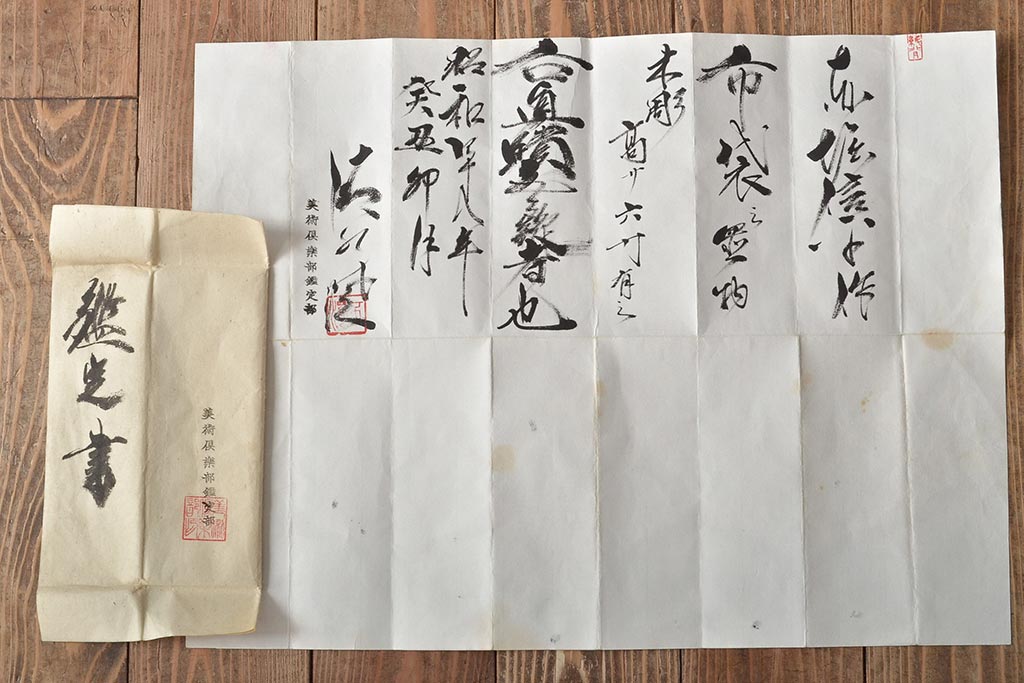 赤堀信平作
布袋之置物
木彫
高サ六寸有之
右真蹟無疑者也
昭和四十八年
癸丑卯月
美術倶楽部鑑定部
鑑定書
美術倶楽部鑑定部